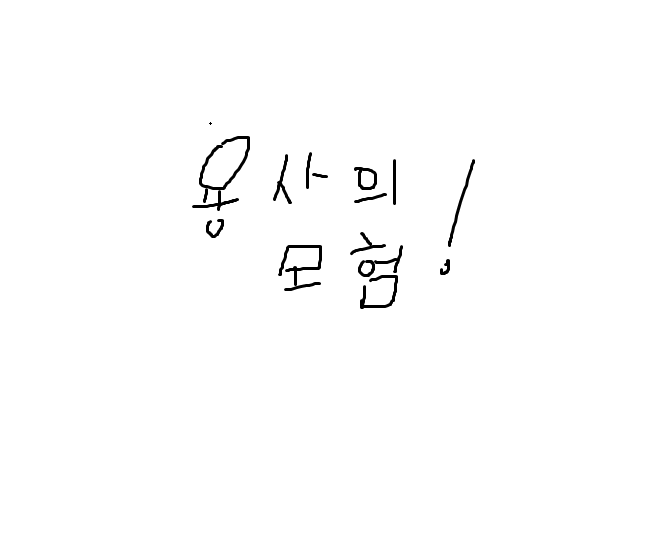 용사의
모험!